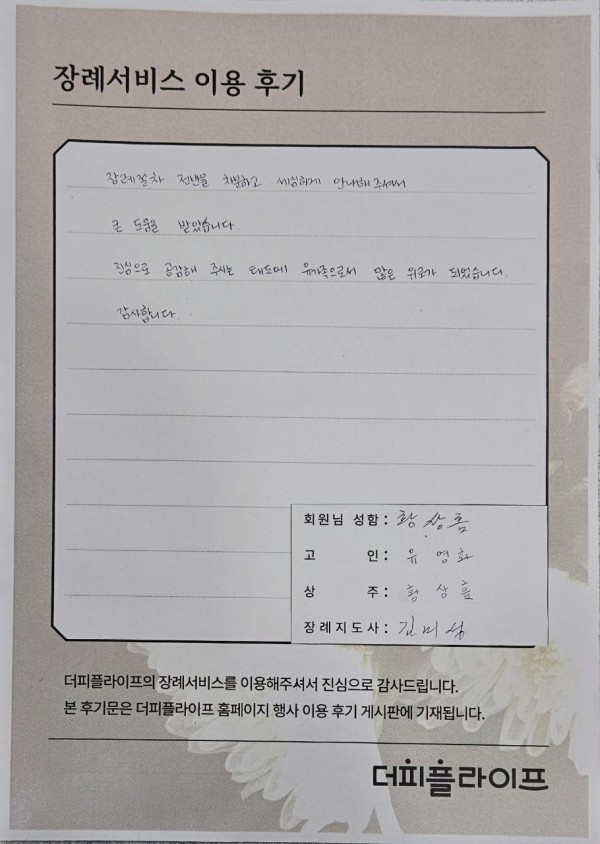 장례서비스 이용 후기
장례절차 전반을 차분하고 세심하게 안내해주셔서
큰 도움을 받았습니다.
진심으로 공감해 주시는 태도에 유가족으로서 많은 위로가 되었습니다.
감사합니다.
회원님 성함: 황상흠
고 인: 유영화
상 주: 황상흠
장례지도사: 김미성
더피플라이프의 장례서비스를 이용해주셔서 진심으로 감사드립니다.
본 후기문은 더피플라이프 홈페이지 행사 이용 후기 게시판에 기재됩니다.
더피플라이프